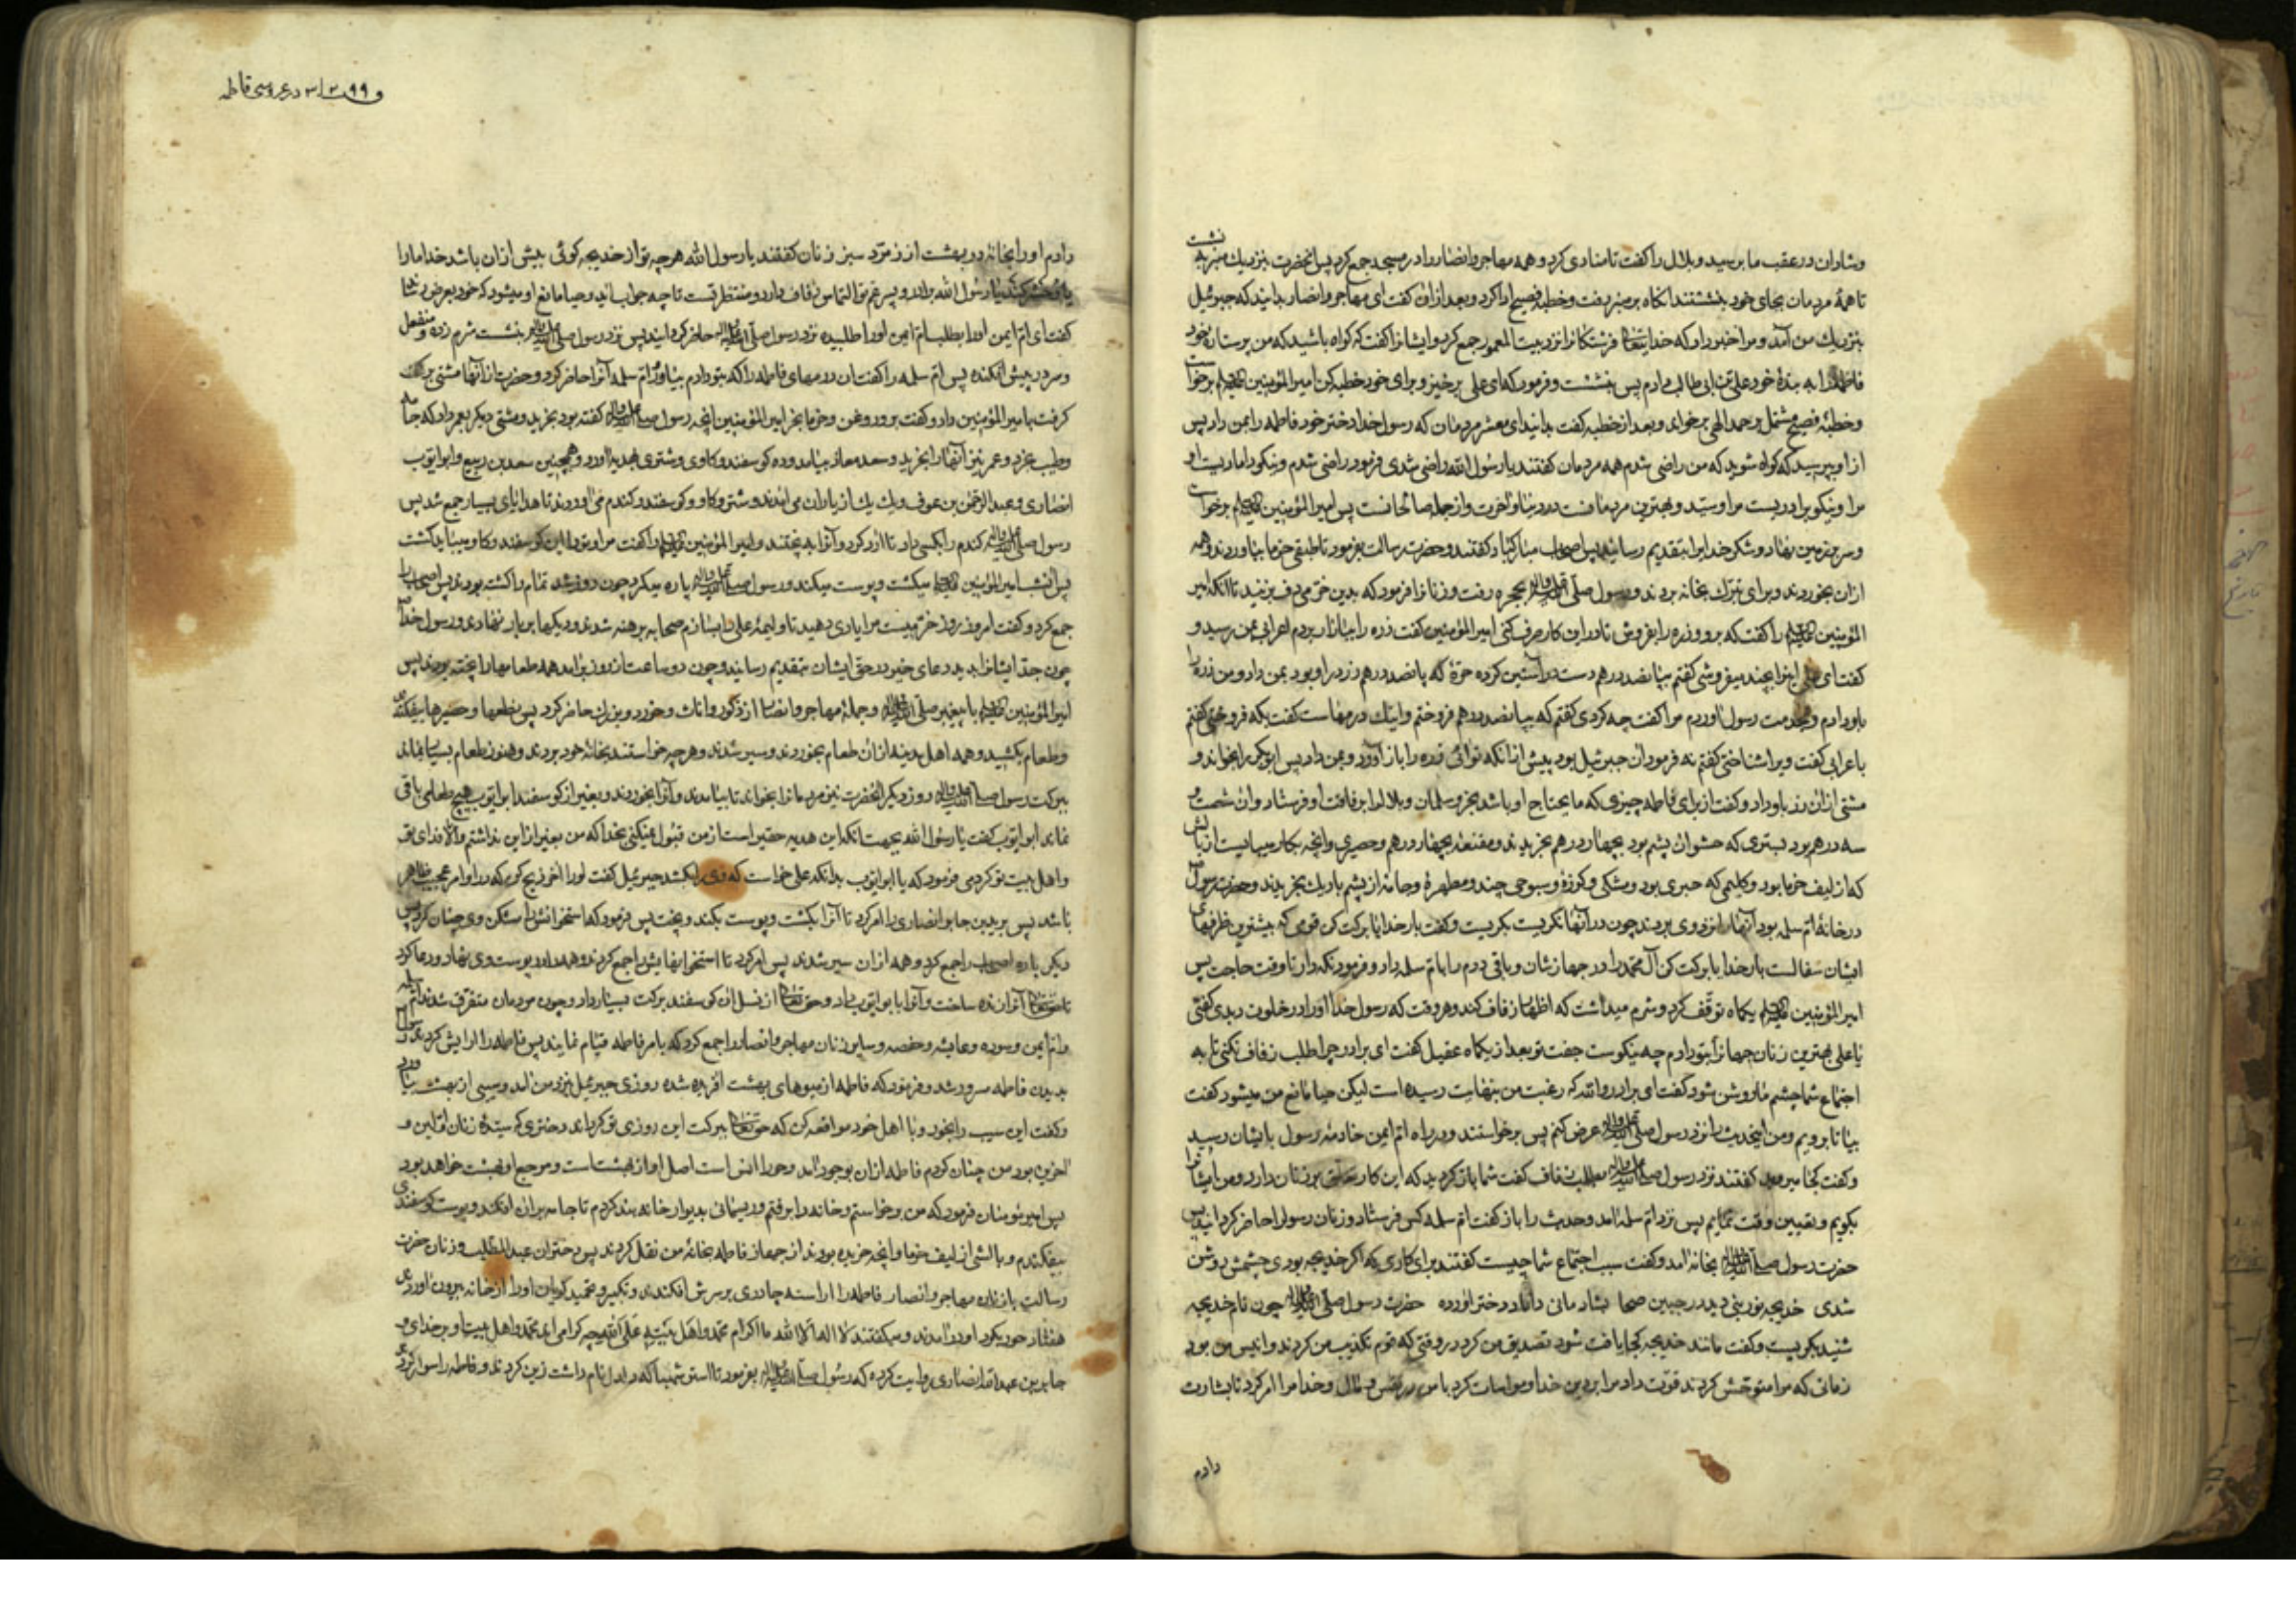 وشادان در عقب ما برسید و بلال را گفت تا منادی کرد و همه مهاجر و انصار را در مسجد جمع کرد پس آنحضرت بنزدیك منبر نشست
تا همهٔ مردمان بجای خود بنشستند آنکاه بر منبر رفت و خطبهٔ فصیح ادا کرد و بعد از ان گفت ای مهاجر و انصار بدانید که جبرئیل
بنزدیك من آمد و مرا خبر داد که خدایتعالی فرشتکانرا نزد بیت المعمور جمع کرد و ایشانرا گفت که کواه باشید که من پرستار خود
فاطمه را به بندهٔ خود علی بن ابی طالب دادم پس بنشست و فرمود که ای علی برخیز و برای خود خطبه کن امیر المؤمنین برخواست
و خطبهٔ فصیح مشتمل بر حمد الهی برخواند و بعد از خطبه کفت بدانید ای معشر مردمان که رسول خدا دختر خود فاطمه را بمن داد پس
از او بپرسید که کواه شوید که من راضی شدم همه مردمان کفتند یا رسول الله راضی شدی فرمود راضی شدم و نیکو دامادیست او
مرا و نیکو برادریست مرا و سید و بهترین مردمانست در دنیا و اخرت و از جمله صالحانست پس امیر المؤمنین برخواست
و سر بزمین نهاد و شکر خدا برا بتقدیم رسانید پس اصحاب مبارکباد کفتند و حضرت رسالت بفرمود تا طبقی خرما بیاوردند و همه
ازان بخوردند و برای تبرك بخانه بردند و رسول صلی الله علیه واله بحجره رفت و زنانرا فرمود که بدین خرمی دف بزنید تا انکه امیر
المؤمنین را کفت که برو و زره را بفروش تا در این کار صرف کنی امیر المؤمنین کفت زره را ببازار بردم اعرابی بمن رسید و
کفت ای علی اینرا بچند میفروشی کفتم بپانصد درهم دست در آستین کرده صرّهٔ که پانصد درهم زر در او بود بمن داد و من زره را
باو دادم و بخدمت رسول اوردم مرا کفت چه کردی کفتم که بپانصد درهم فروختم و اینك درمهاست کفت بکه فروختی کفتم
باعرابی کفت ویرا شناختی کفتم نه فرمود ان جبرئیل بود پیش از انکه تو ائی زره را باز آورد و بمن داد پس ابو بکر را بخواند و
مشتی ازان زر باو داد و کفت از برای فاطمه چیزی که مایحتاج او باشد بخر و سلمان و بلال را برفاقت او فرستاد و ان شصت و
سه درهم بود بستری که حشو ان پشم بود بچهار درهم بخریدند و مقنعه بچهار درهم و حصیری و انچه بکار میبایست از بالش
که از لیف خرما بود و کلیمی که خیبری بود و مشکی و کوزهٔ و سبوی چند و مطهرهٔ و جامهٔ از پشم باریك بخریدند و حضرت رسول
در خانهٔ ام سلمه بود آنها را نزد وی بردند چون در آنها نکریست بکریست و کفت بار خدایا برکت کن قومی که بیشترین ظرفهای
ایشان سفالست بار خدایا برکت کن آل محمد را در جهاز شان و باقی درم را با م سلمه داد و فرمود نکه دار تا وقت حاجت پس
امیر المؤمنین یکماه توقف کرد و شرم میداشت که اظهار زفاف کند و هر وقت که رسول خدا او را در خلوت دیدی کفتی
یا علی بهترین زنان جهانرا بتو دادم چه نیکوست جفت تو بعد از یکماه عقیل کفت ای برادر چرا طلب زفاف نکنی تا به
اجتماع شما چشم ما روشن شود کفت ای برادر والله که رغبت من بنهایت رسیده است لیکن حیا مانع من میشود کفت
بیا تا برویم و من اینحدیث را نزد رسول صلی الله علیه واله عرض کنم پس برخواستند و در راه ام ایمن خادمه رسول بایشان رسید
و کفت کجا میروید کفتند نزد رسول صلی الله علیه واله بطلب زفاف کفت شما باز کردید که این کار تعلق بزنان دارد و من ایشانرا
بکویم و تعیین وقت نمایم پس نزد ام سلمه امد و حدیث را باز کفت ام سلمه کس فرستاد و زنان رسول را حاضر کردانید پس
حضرت رسول صلی الله علیه واله بخانه امد و کفت سبب اجتماع شما چیست کفتند برای کاری که اکر خدیجه بودی چشمش روشن
شدی حضرت رسول صلی الله علیه واله چون نام خدیجه
شنید بکریست و کفت مانند خدیجه کجا یافت شود تصدیق من کرد در وقتی که قوم تکذیب من کردند و انیس من بود
زمانی که مرا متوحش کردند قوّت داد مرا بر دین خدا و مواسات کرد با من در نفس و مال و خدا مرا امر کرد تا بشارت
دادم
در عروسی فاطمه
دادم او را بخانهٔ در بهشت از زمرّد سبز زنان کفتند یا رسول الله هرچه تو از خدیجه کوئی بیش ازان باشد خدا ما را
یا رسول الله برادر و پسر عم تو التماس زفاف دارد و منتظرتست تا چه جواب آید و حیا مانع او میشود که خود بعرض رساند
کفت ای ام ایمن او را بطلب ام ایمن او را طلبیده نزد رسول صلی الله علیه واله حاضر کردانید پس نزد رسول صلی الله علیه واله بنشست شرم زده و منفعل
و سر در پیش افکنده پس ام سلمه را کفت ان درمهای فاطمه را که بتو دادم بیاور ام سلمه آنرا حاضر کرد و حضرت از آنها مشتی بر
کرفت بامیر المؤمنین داد و کفت برو و روغن و خرما بخر امیر المؤمنین انچه رسول صلی الله علیه واله کفته بود بخرید و مشتی دیکر بعمر داد که جامه
و طیب خرد و عمر نیز آنها را بخرید و سعد معاذ بیامد و ده کوسفند و کاوی و شتری بهدیه آورد و همچنین سعد بن ربیع و ابو ایوب
انصاری و عبد الرحمن بن عوف و یك یك از یاران می امدند و شتر و کاو و کوسفند و کندم می آوردند تا هدایای بسیار جمع شد پس
رسول صلی الله علیه واله کندم را بکسی داد تا آرد کرد و آنرا به پختند و امیر المؤمنین را کفت مرا و تو را این کوسفند و کاو میباید کشت
پس انشب امیر المؤمنین میکشت و پوست میکند و رسول صلی الله علیه واله پاره میکرد چون روز شد تمام را کشته بودند پس اصحاب را
جمع کرد و کفت امروز روز خرّمیست مرا یاری دهید تا ولیمهٔ علی را بسازم صحابه برهنه شدند و دیکها بر بار نهادند و رسول خدا
چون جدّ ایشانرا بدید دعای خیر در حق ایشان بتقدیم رسانید و چون دو ساعت از روز برامد همه طعامها را پخته بودند پس
امیر المؤمنین با پیغمبر صلی الله علیه واله و جملهٔ مهاجر و انصار از ذکور و اناث و خورد و بزرك حاضر کرد پس نطعها و حصیرها بیفکندند
و طعام بکشید و همه اهل مدینه ازان طعام بخوردند و سیر شدند و هرچه خواستند بخانهٔ خود بردند و هنوز طعام بسیار بماند
ببرکت رسول صلی الله علیه واله روز دیکر انحضرت نیز مردمانرا بخواند تا بیامدند و آنرا بخوردند و بغیر از کوسفند ابو ایوب هیچ طعامی باقی
نماند ابو ایوب کفت یا رسول الله بجهت انکه این هدیه حقیر است از من قبول نمیکنی بخدا که من بغیر از این نداشتم والا فدای تو
و اهل بیت تو کردمی فرمود که یا ابو ایوب بدانکه علی خواست که وی را بکشد جبرئیل کفت او را اخر ذبح کن که در او امر عجیب ظاهر
باشد پس بریدبن جابر انصاری را امر کرد تا آنرا بکشت و پوست بکند و بپخت پس فرمود که استخوانش را مشکن وی چنان کرد پس
دیکر باره اصحاب را جمع کرد و همه ازان سیر شدند پس امر کرد تا استخوانهایش را جمع کردند و همه را در پوست وی نهاد و دعا کرد
تا حق تعالی آنرا زنده ساخت و آنرا بابو ایوب داد و حق تعالی از نسل ان کوسفند برکت بسیار داد و چون مردمان متفرق شدند ام سلمه
و ام ایمن و سوده و عایشه و حفصه و سایر زنان مهاجر و انصار را جمع کرد که بامر فاطمه قیام نمایند پس فاطمه را ارایش کردند رسول
بدیدن فاطمه مسرور شد و فرمود که فاطمه از میوهای بهشت افریده شده روزی جبرئیل بنزد من آمد و سیبی از بهشت بیاورد
و کفت این سیب را بخور و با اهل خود مواقعه کن که حق تعالی ببرکت این روزی تو کرداند دختری که سیدهٔ زنان اولین و
اخرین بود من چنان کردم فاطمه ازان بوجود آمد و حورا انس است اصل او از بهشتست و مرجع او بهشت خواهد بود
پس امیر مؤمنان فرمود که من برخواستم و خانه را برفتم و ریسمانی بدیوار خانه بند کردم تا جامه بران افکند و پوست کوسفندی
بیفکندم و بالشی از لیف خرما و انچه خریده بودند از جهاز فاطمه بخانهٔ من نقل کردند پس دختران عبد المطلب و زنان حضرت
رسالت با زنان مهاجر و انصار فاطمه را اراسته چادری بر سرش افکندند و تکبیر و تحمید کویان او را از خانه بیرون اوردند
هفتاد حور بکرد او درامدند و میکفتند لا اله الا الله ما اکرام محمد و اهل بیته علی الله چه کرامی اند محمد و اهل بیت او بر خدای و
جابر بن عبد الله انصاری روایت کرده که رسول صلی الله علیه واله بفرمود تا استر شهبا که دلدل نام داشت زین کردند و فاطمه را سوار کردند